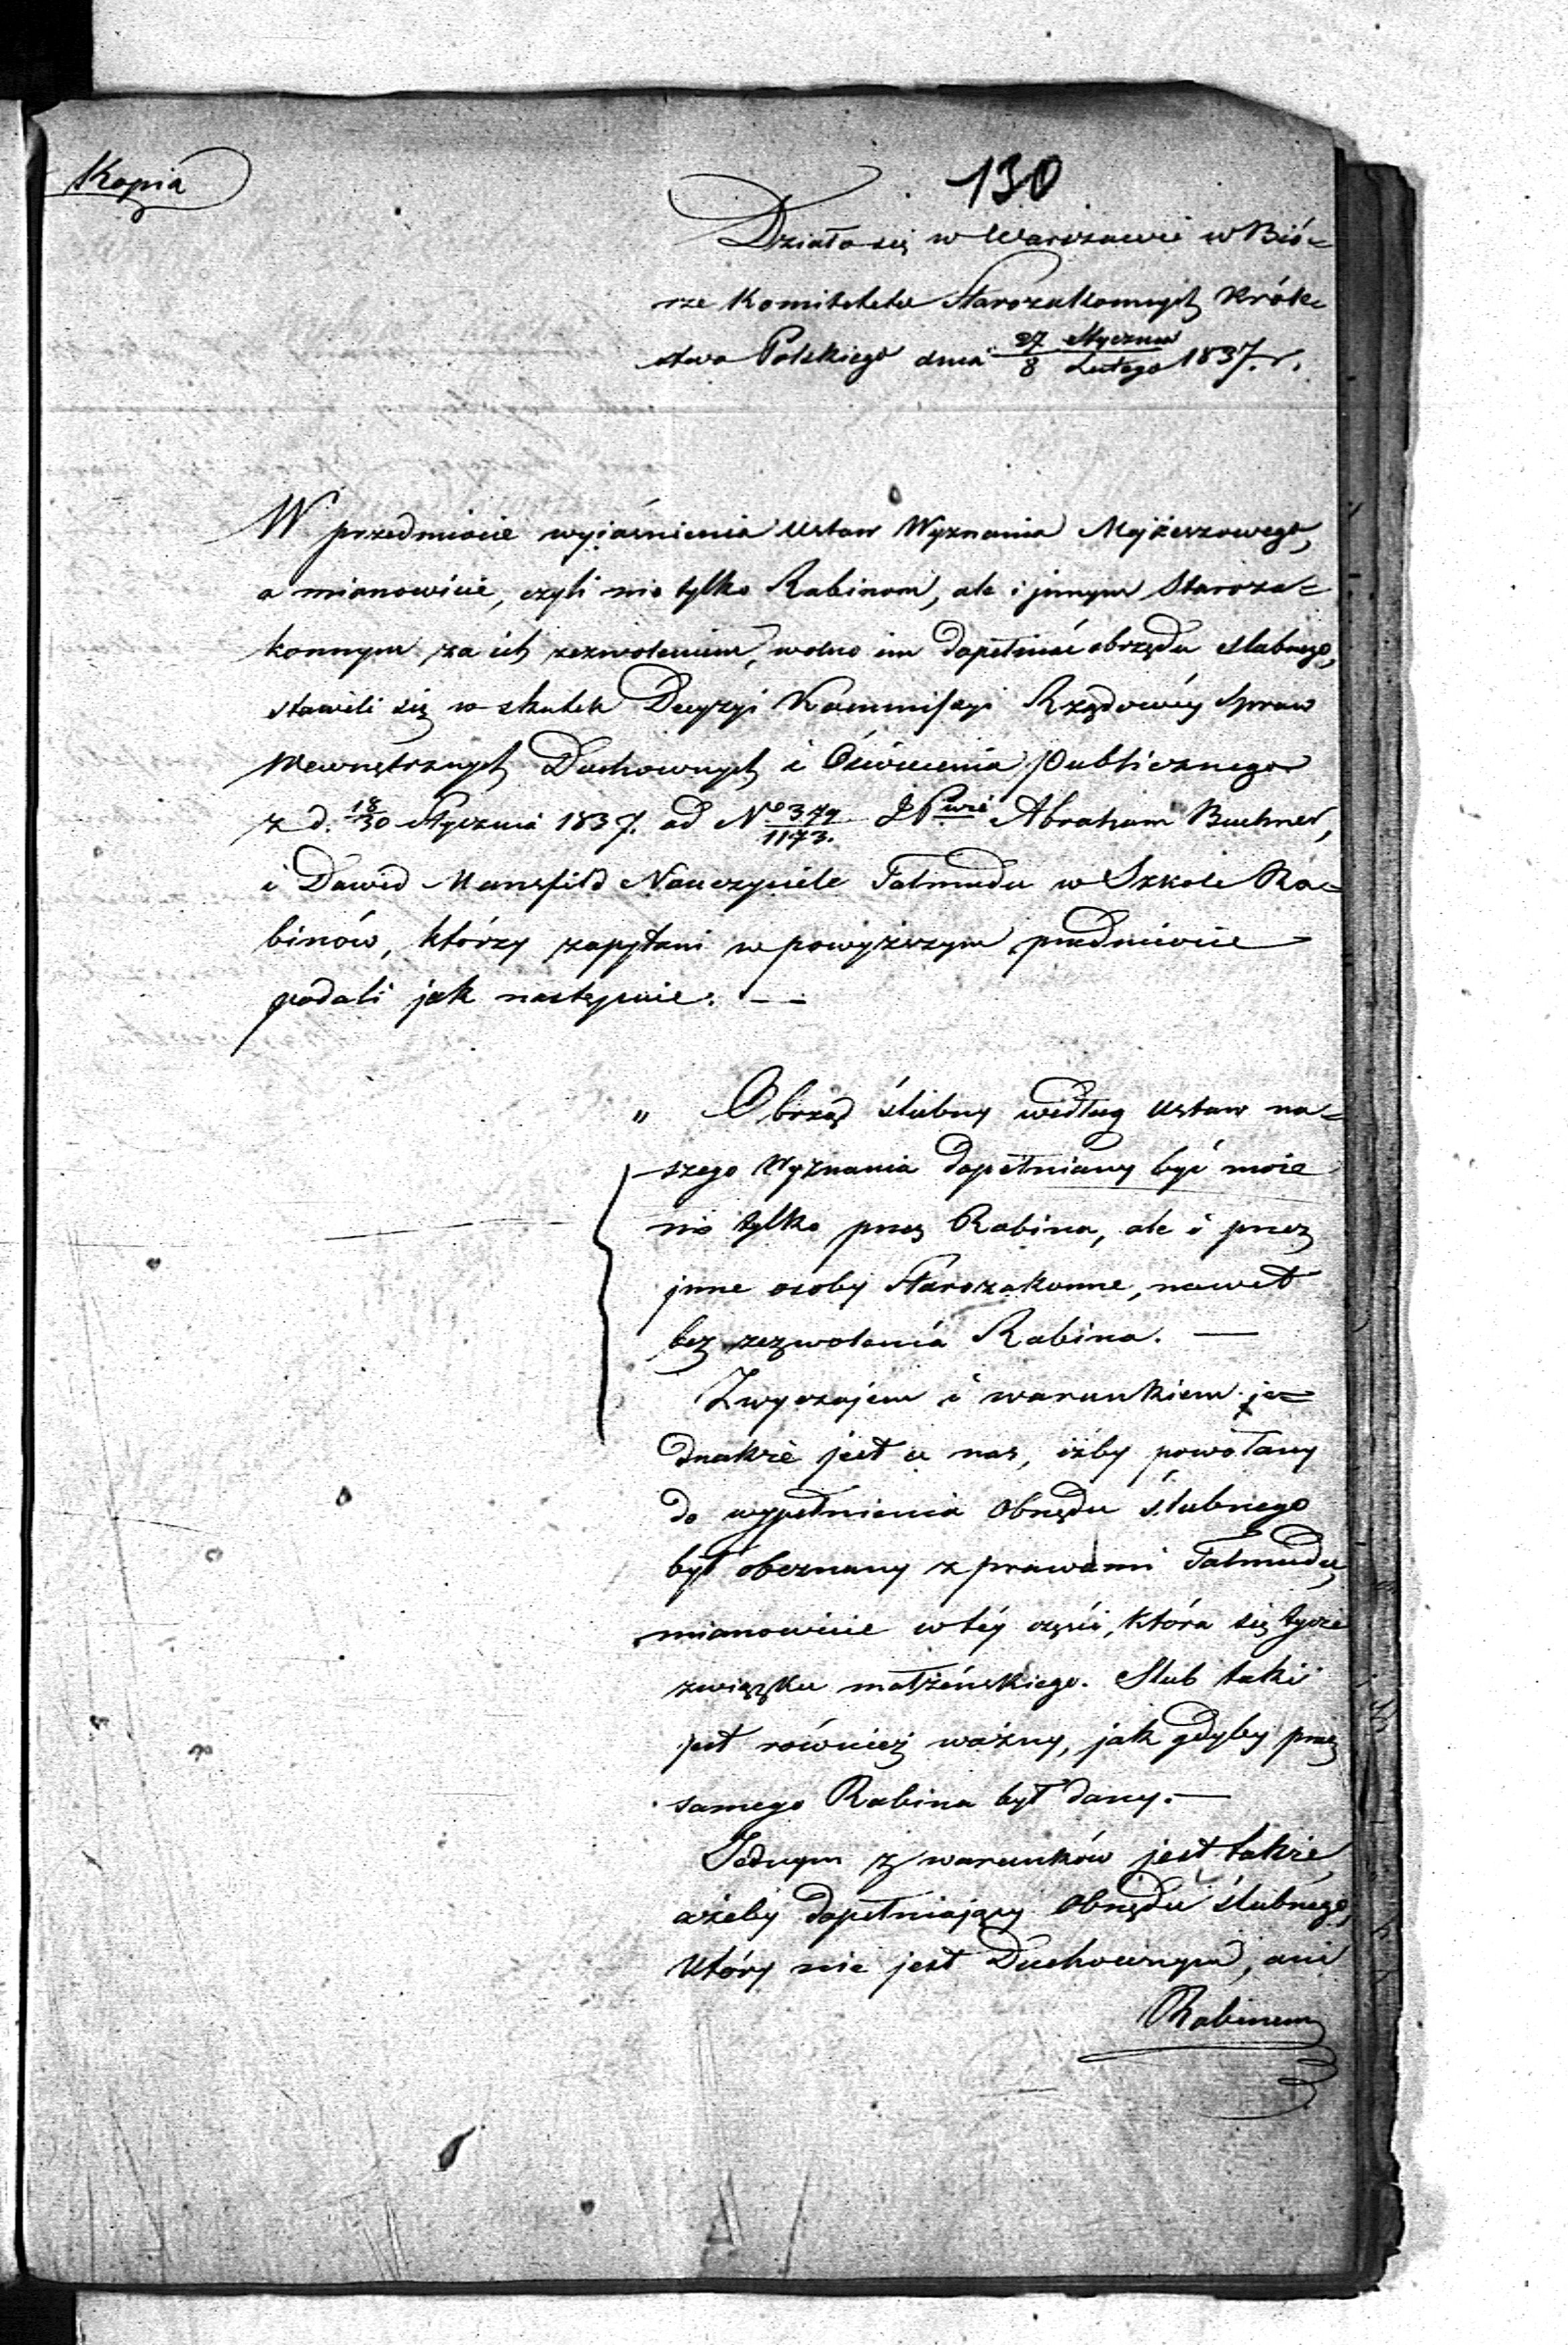 Kopia
130
Działo się w Warszawie w Bió=
rze Komitetetu Starozakonnych Króle
stwa Polskiego dnia 27 Stycznia / 8 Lutego 1837. r.
W przedmiocie wyjaśnienia Ustaw Wyznania Mojżeszowego,
a mianowicie, czyli nie tylko Rabinom, ale i jnnym Staroza=
konnym za ich zezwoleniem, wolno im dopełniać obrzędu slubnego,
stawili się w skutek Decyzyi Kommissyi Rządowéy Spraw
Wewnętrznych Duchownych i Oświecenia Publicznego
z d. 18/30 Stycznia 1837. ad No 379/1173. JPwie Abraham Buchner,
i Dawid Mansfild Nauczyciele Talmudu w Szkole Ra=
binów, którzy zapytani w powyższym przedmiocie
podali jak następuie. —
" Obrząd ślubny według Ustaw na=
szego Wyznania dopełniany być może
nie tylko przez Rabina, ale i przez
jnne osoby Starozakonne, nawet
bez zezwolenia Rabina. —
Zwyczajem i warunkiem je=
dnakże jest u nas, iżby powołany
do wypełnienia Obrzędu ślubnego
był obeznany z prawami Talmudu,
mianowicie w téy części, która się tycze
związku małżeńskiego. Slub taki
jest również ważny, jak gdyby przez
samego Rabina był dany. —
Jednym z warunków jest także,
ażeby dopełniający Obrzędu ślubnego,
który nie jest Duchownym, ani
Rabinem